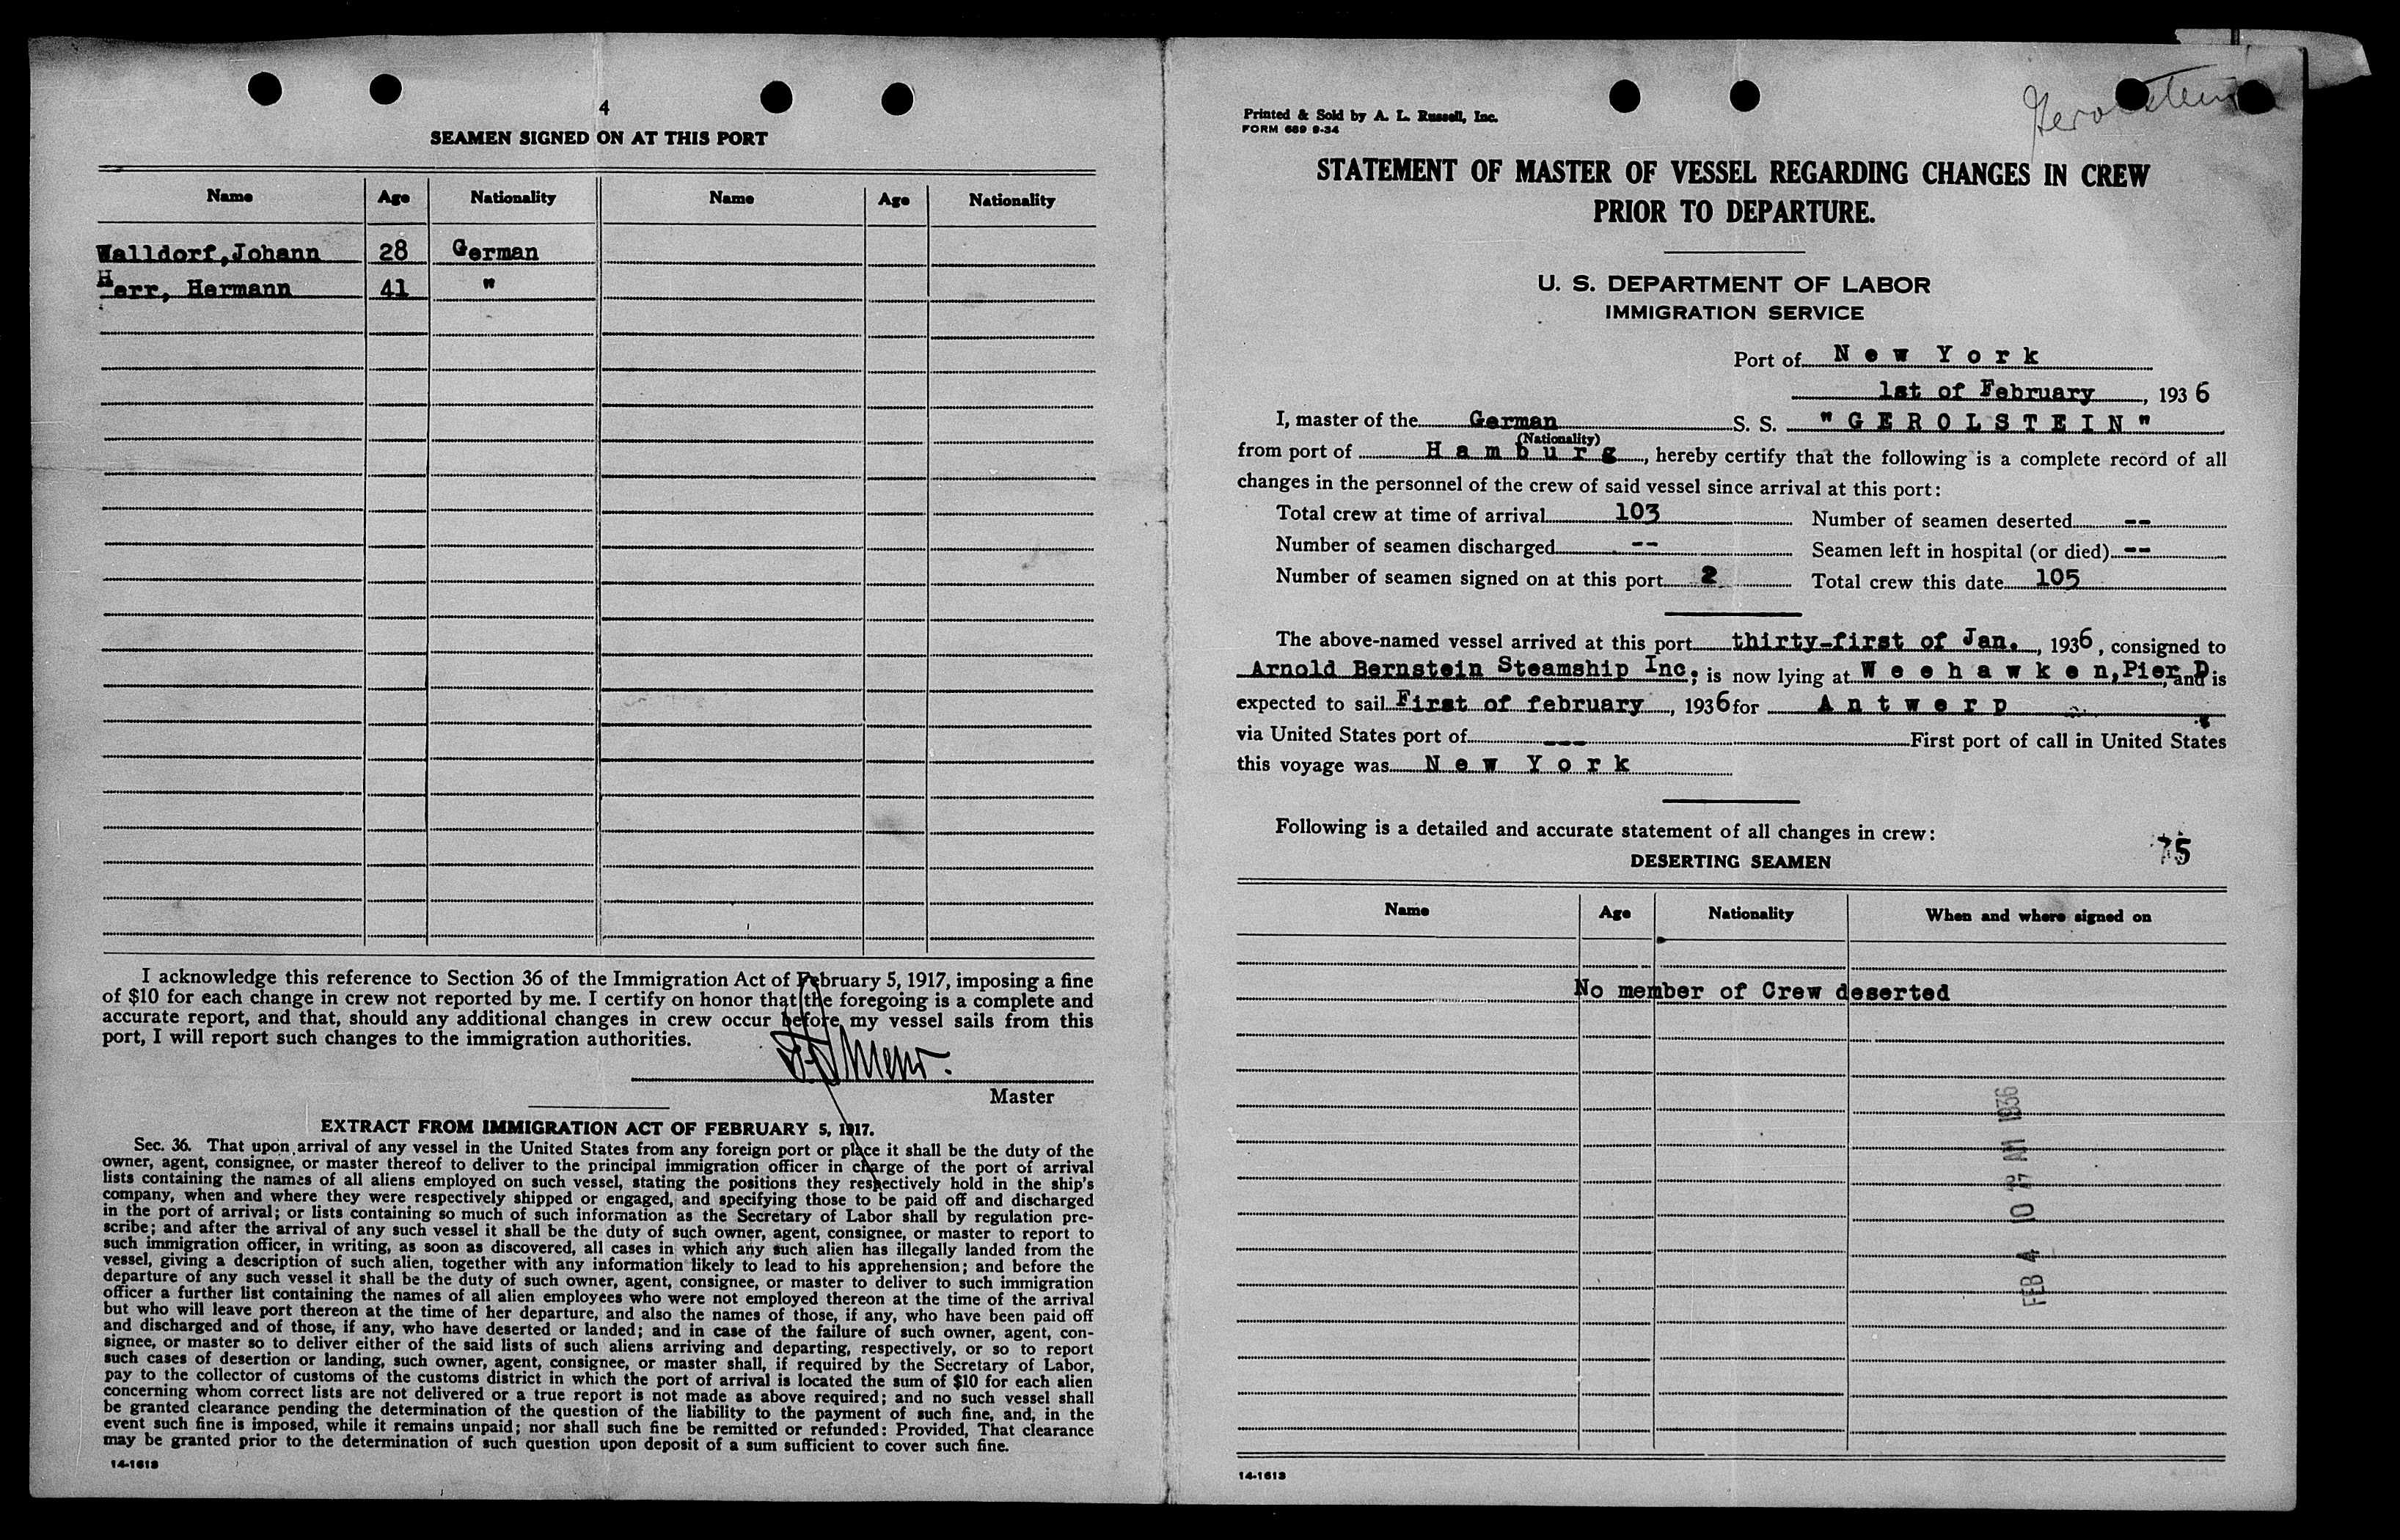 4
SEAMEN SIGNED ON AT THIS PORT
Name Age Nationality Name Age Nationality
Walldorf, Johann 28 German
Herr, Hermann 41 "
I acknowledge this reference to Section 36 of the Immigration Act of February 5, 1917, imposing a fine
of $10 for each change in crew not reported by me. I certify on honor that the foregoing is a complete and
accurate report, and that, should any additional changes in crew occur before my vessel sails from this
port, I will report such changes to the immigration authorities.
Master
EXTRACT FROM IMMIGRATION ACT OF FEBRUARY 5, 1917.
Sec. 36. That upon arrival of any vessel in the United States from any foreign port or place it shall be the duty of the
owner, agent, consignee, or master thereof to deliver to the principal immigration officer in charge of the port of arrival
lists containing the names of all aliens employed on such vessel, stating the positions they respectively hold in the ship's
company, when and where they were respectively shipped or engaged, and specifying those to be paid off and discharged
in the port of arrival; or lists containing so much of such information as the Secretary of Labor shall by regulation pre-
scribe; and after the arrival of any such vessel it shall be the duty of such owner, agent, consignee, or master to report to
such immigration officer, in writing, as soon as discovered, all cases in which any such alien has illegally landed from the
vessel, giving a description of such alien, together with any information likely to lead to his apprehension; and before the
departure of any such vessel it shall be the duty of such owner, agent, consignee, or master to deliver to such immigration
officer a further list containing the names of all alien employees who were not employed thereon at the time of the arrival
but who will leave port thereon at the time of her departure, and also the names of those, if any, who have been paid off
and discharged and of those, if any, who have deserted or landed; and in case of the failure of such owner, agent, con-
signee, or master so to deliver either of the said lists of such aliens arriving and departing, respectively, or so to report
such cases of desertion or landing, such owner, agent, consignee, or master shall, if required by the Secretary of Labor,
pay to the collector of customs of the customs district in which the port of arrival is located the sum of $10 for each alien
concerning whom correct lists are not delivered or a true report is not made as above required; and no such vessel shall
be granted clearance pending the determination of the question of the liability to the payment of such fine, and, in the
event such fine is imposed, while it remains unpaid; nor shall such fine be remitted or refunded: Provided, That clearance
may be granted prior to the determination of such question upon deposit of a sum sufficient to cover such fine.
14-1613
Gerolstein
Printed & Sold by A. L. Russell, Inc.
FORM 689 9-34
STATEMENT OF MASTER OF VESSEL REGARDING CHANGES IN CREW
PRIOR TO DEPARTURE.
U. S. DEPARTMENT OF LABOR
IMMIGRATION SERVICE
Port of New York
1st of February, 1936
I, master of the German S. S. "GEROLSTEIN"
(Nationality)
from port of Hamburg, hereby certify that the following is a complete record of all
changes in the personnel of the crew of said vessel since arrival at this port:
Total crew at time of arrival 103 Number of seamen deserted --
Number of seamen discharged -- Seamen left in hospital (or died) --
Number of seamen signed on at this port 2 Total crew this date 105
The above-named vessel arrived at this port thirty-first of Jan., 1936, consigned to
Arnold Bernstein Steamship Inc; is now lying at Weehawken, Pier D, and is
expected to sail First of february, 1936 for Antwerp
via United States port of --- First port of call in United States
this voyage was New York
Following is a detailed and accurate statement of all changes in crew:
75
DESERTING SEAMEN
Name Age Nationality When and where signed on
No member of Crew deserted
FEB 4 10 AM 1936
14-1613